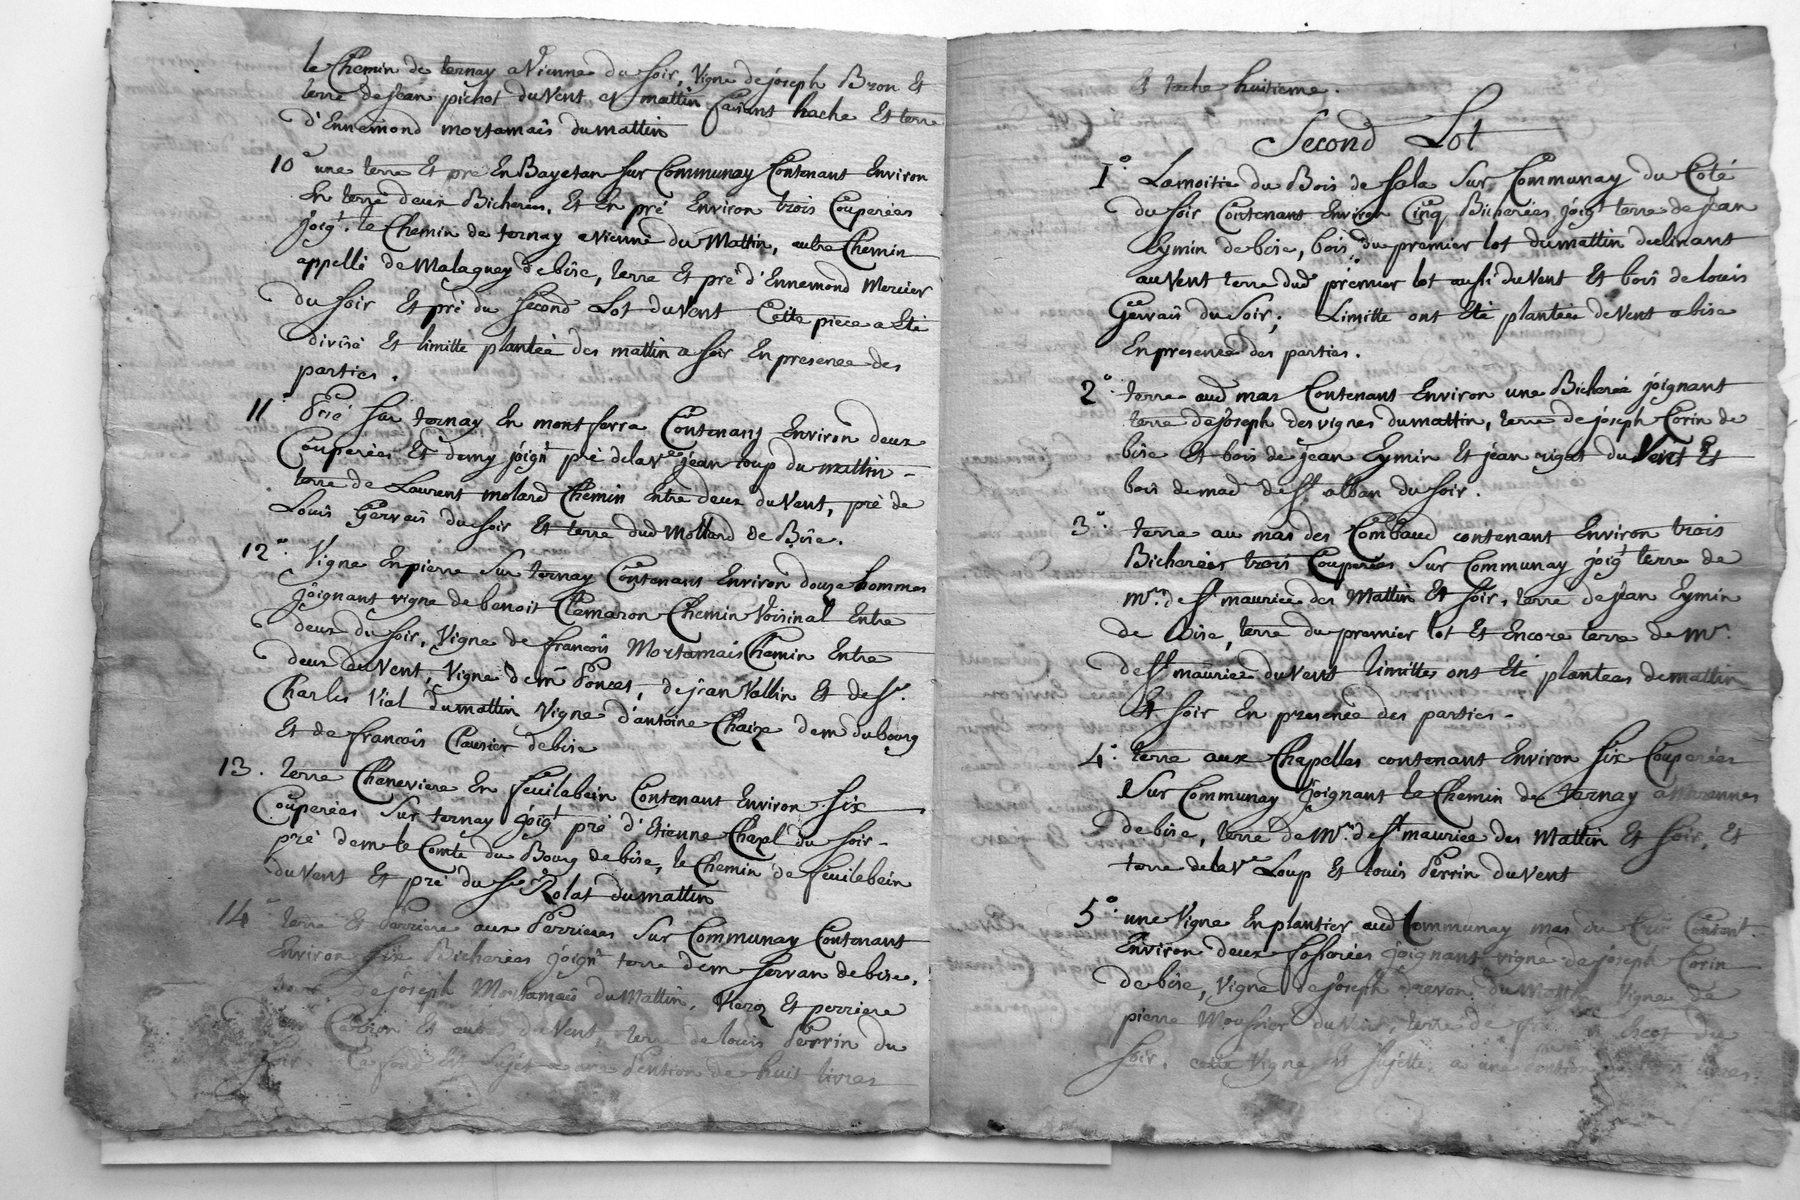 le Chemin de ternay a Vienne du soir, vigne de joseph Bron Et
terre de jean pichot du Vent et mattin faisant hache Et terre
d'Ennemond mortamais du mattin
10° une terre Et pré En Bayetan sur Communay Contenant Environ
En terre deux Bicherées, Et En pré Environ trois Couperées
joigt. le Chemin de ternay a vienne du Mattin, autre Chemin
appellé de Malaguey de bise, terre Et pré d'Ennemond Mercier
du soir Et pré du second Lot du Vent Cette piece a Eté
divisé Et limitté plantée des mattin a soir En presence des
parties.
11° Pré sur ternay En montferra Contenant Environ deux
Couperées Et demy joignt pré de la Ve jean loup du mattin
terre de Laurent molard Chemin Entre deux du Vent, pré de
Louis Gervais du soir Et terre dud Mollard de Bise.
12° Vigne En pierre Sur ternay Contenant Environ douze hommes
joignant vigne de benoit Clemaron Chemin Voisinal Entre
deux du soir, Vigne de francois Mortamais Chemin Entre
deux du Vent, Vigne de mr Poncet, de jean Vallin Et de sr.
Charles Vial du mattin Vigne d'antoine Chaize dem dubourg
Et de francois Clausier de bise
13. terre Cheneviere En feuilabein Contenant Environ six
Couperées Sur ternay joigt pré d'Etienne Chazel du soir
pré dem le Comte du Bourg de bise, le Chemin de feuilebein
du Vent Et pré du sr Rolat du mattin
14° terre Et Perriere aux Perrieres Sur Communay Contenant
Environ six Bicherées joignt terre dem servan de bise,
de joseph Mortamais du Mattin, Et perriere
Et autre du Vent, terre de louis Perrin du
soir. Ce fond Est Sujet a une Pention de huit livres
Et tache huitieme.
Second Lot
1° La moitié du Bois de sala Sur Communay du Coté
du soir Contenant Environ Cinq Bicherées joigt terre de jean
Eymin de bise, bois du premier lot du mattin declinant
au Vent terre dud premier lot aussi du Vent Et bois de louis
Gervais du Soir; Limitte ont Eté plantées de Vent a bise
En presence des parties.
2° terre aud mas Contenant Environ une Bicherée joignant
terre de joseph des vignes du mattin, terre de joseph Corin de
bise Et bois de jean Eymin Et jean rigat du Vent Et
bois de mad de St alban du soir.
3° terre au mas des Combaud contenant Environ trois
Bicherées trois Couperées Sur Communay joigt terre de
Mr. de St maurice des Mattin Et soir, terre de jean Eymin
de Bise, terre du premier lot Et Encore terre de Mr.
de St maurice du Vent limittes ont Eté plantées de mattin
Et soir En presence des parties.
4° terre aux Chapelles contenant Environ six Couperées
Sur Communay joignant le Chemin de ternay a Vienne
de bise, terre de Mr. de St maurice des Mattin Et soir, Et
terre de la Ve Loup Et louis Perrin du Vent
5° une Vigne En plantier aud Communay mas du Content.
Environ deux fossorées joignant vigne de joseph Corin
de bise, Vigne de joseph drevon du Mattin Vigne de
pierre Moussier du Vent, terre de du
soir. cette Vigne Est Sujette a une Pention livres.